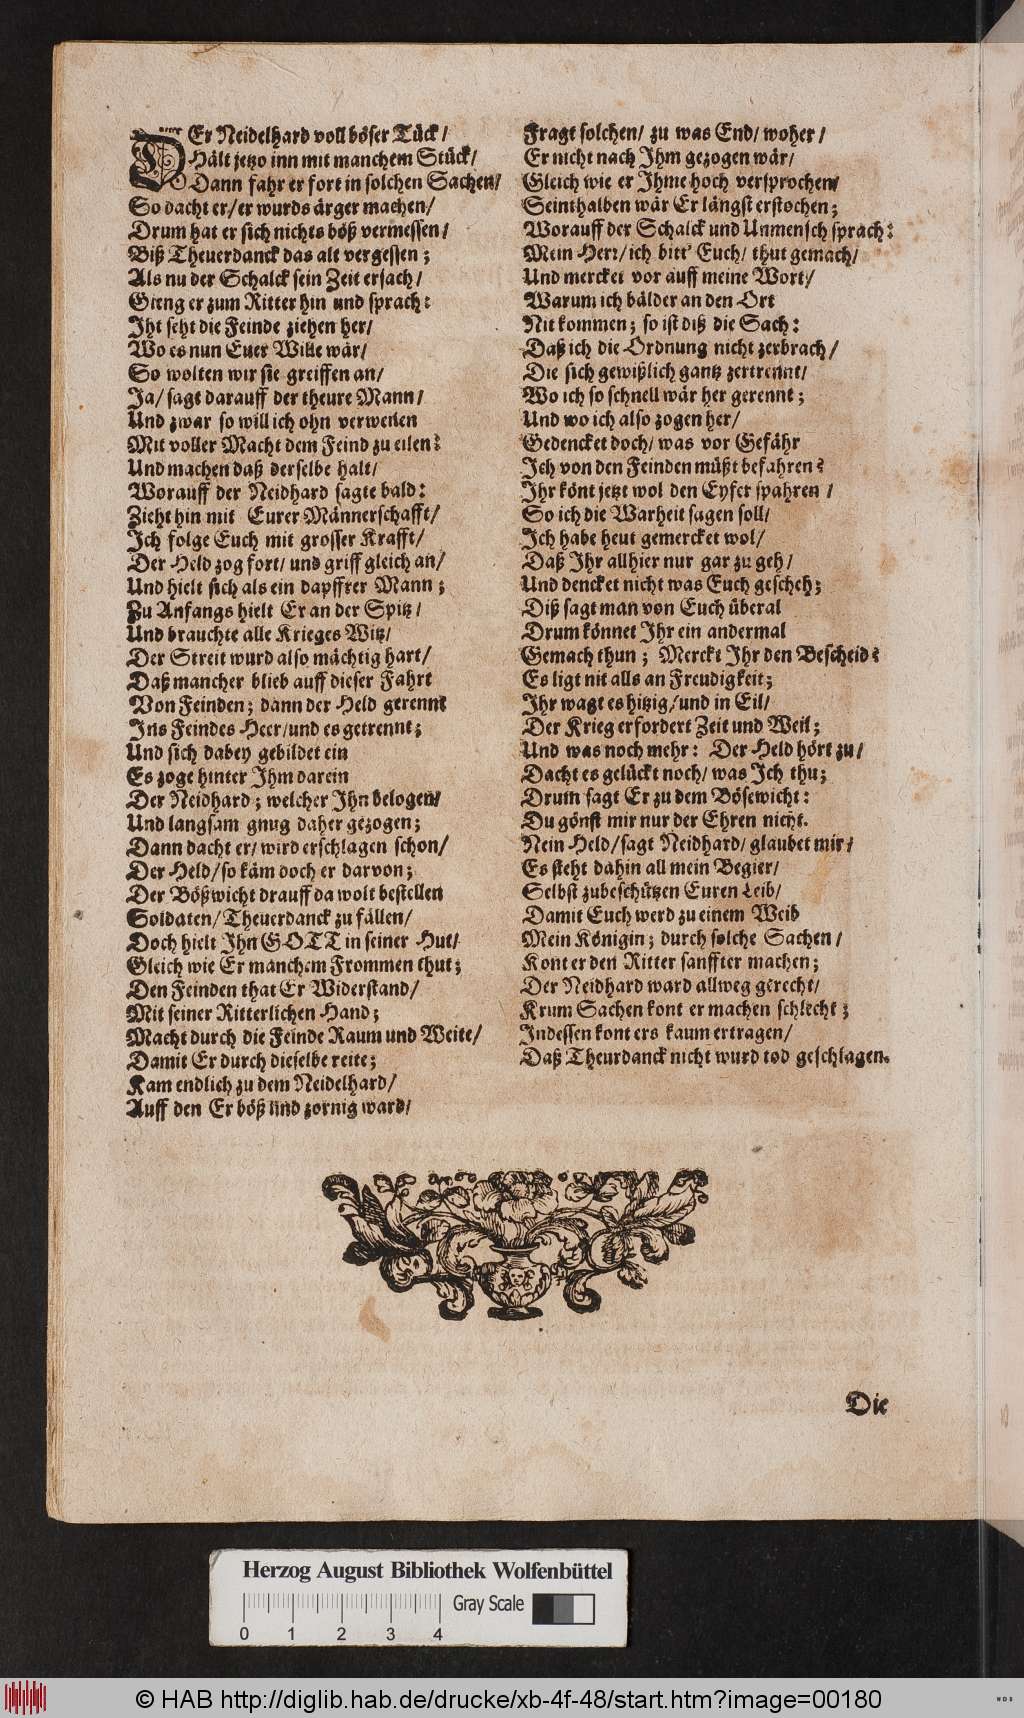 DEr Neidelhard voll böser Tück/
Hält jetzo inn mit manchem Stück/
Dann fahr er fort in solchen Sachen/
So dacht er/ er wurds ärger machen/
Drum hat er sich nichts böß vermessen/
Biß Theuerdanck das alt vergessen;
Als nu der Schalck sein Zeit ersach/
Gieng er zum Ritter hin und sprach:
Iht seht die Feinde ziehen her/
Wo es nun Euer Wille wär/
So wolten wir sie greiffen an/
Ja/ sagt darauff der theure Mann/
Und zwar so will ich ohn verweilen
Mit voller Macht dem Feind zu eilen:
Und machen daß derselbe halt/
Worauff der Neidhard sagte bald:
Zieht hin mit Eurer Männerschafft/
Ich folge Euch mit grosser Krafft/
Der Held zog fort/ und griff gleich an/
Und hielt sich als ein dapffrer Mann;
Zu Anfangs hielt Er an der Spitz/
Und brauchte alle Krieges Witz/
Der Streit wurd also mächtig hart/
Daß mancher blieb auff dieser Fahrt
Von Feinden; dann der Held gerennt
Ins Feindes Heer/ und es getrennt;
Und sich dabey gebildet ein
Es zoge hinter Ihm darein
Der Neidhard; welcher Ihn belogen/
Und langsam gnug daher gezogen;
Dann dacht er/ wird erschlagen schon/
Der Held/ so käm doch er darvon;
Der Bößwicht drauff da wolt bestellen
Soldaten/ Theuerdanck zu fällen/
Doch hielt Ihn GOTT in seiner Hut/
Gleich wie Er manchem Frommen thut;
Den Feinden that Er Widerstand/
Mit seiner Ritterlichen Hand;
Macht durch die Feinde Raum und Weite/
Damit Er durch dieselbe reite;
Kam endlich zu dem Neidelhard/
Auff den Er böß und zornig ward/
Fragt solchen/ zu was End/ woher/
Er nicht nach Ihm gezogen wär/
Gleich wie er Ihme hoch versprochen/
Seinthalben wär Er längst erstochen;
Worauff der Schalck und Unmensch sprach:
Mein Herr/ ich bitt' Euch/ thut gemach/
Und mercket vor auff meine Wort/
Warum ich bälder an den Ort
Nit kommen; so ist diß die Sach:
Daß ich die Ordnung nicht zerbrach/
Die sich gewißlich gantz zertrennt/
Wo ich so schnell wär her gerennt;
Und wo ich also zogen her/
Gedencket doch/ was vor Gefähr
Ich von den Feinden müßt befahren?
Ihr könt jetzt wol den Eyfer spahren/
So ich die Warheit sagen soll/
Ich habe heut gemercket wol/
Daß Ihr allhier nur gar zu geh/
Und dencket nicht was Euch gescheh;
Diß sagt man von Euch überal
Drum könnet Ihr ein andermal
Gemach thun; Merckt Ihr den Bescheid?
Es ligt nit alls an Freudigkeit;
Ihr wagt es hitzig/ und in Eil/
Der Krieg erfordert Zeit und Weil;
Und was noch mehr: Der Held hört zu/
Dacht es gelückt noch/ was Ich thu;
Drum sagt Er zu dem Bösewicht:
Du gönst mir nur der Ehren nicht.
Nein Held/ sagt Neidhard/ glaubet mir/
Es steht dahin all mein Begier/
Selbst zubeschützen Euren Leib/
Damit Euch werd zu einem Weib
Mein Königin; durch solche Sachen/
Kont er den Ritter sanffter machen;
Der Neidhard ward allweg gerecht/
Krum Sachen kont er machen schlecht;
Indessen kont ers kaum ertragen/
Daß Theurdanck nicht wurd tod geschlagen.
Die
Herzog August Bibliothek Wolfenbüttel
Gray Scale
0 1 2 3 4
© HAB http://diglib.hab.de/drucke/xb-4f-48/start.htm?image=00180